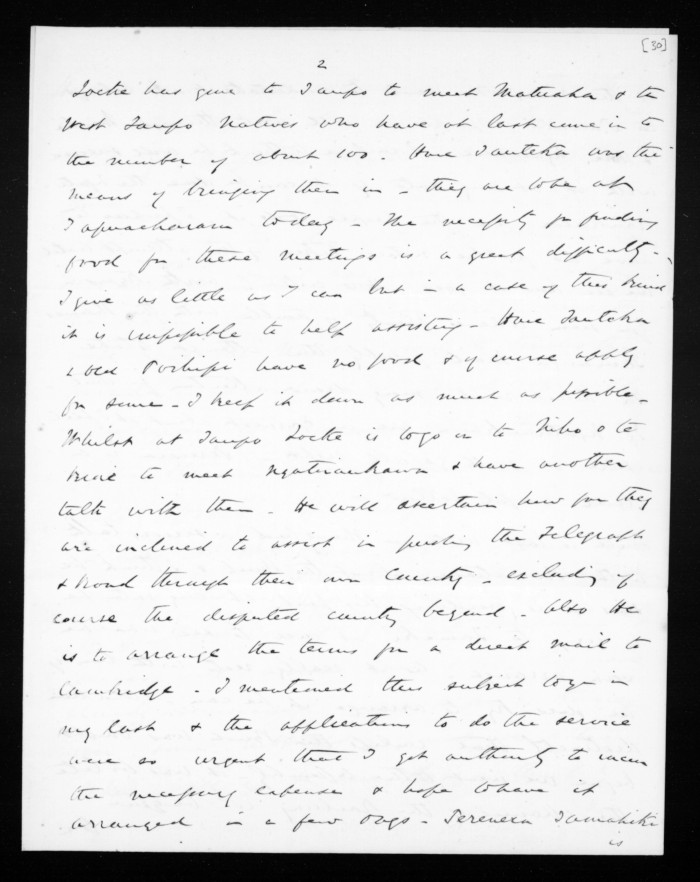 [30]
2
Locke has gone to Taupo to meet Matuaha & the
West Taupo Natives who have at last come in to
the number of about 100. Hare Tauteka was the
means of bringing them in - they are to be at
Tapuaeharuru today - The necessity for finding
food for these meetings is a great difficulty -
I give as little as I can but in a case of this kind
it is impossible to help assisting - Hare Tauteka
& old Poihipi have no food & of course apply
for some - I keep it down as much as possible -
Whilst at Taupo Locke is to go on to Niho o te
Kiore to meet Ngatiraukawa & have another
talk with them - He will ascertain how far they
are inclined to assist in pushing the Telegraph
& road through their own Country - excluding of
course the disputed country beyond - Also He
is to arrange the terms for a direct mail to
Cambridge - I mentioned this subject to you in
my last & the applications to do the service
were so urgent that I got authority to incur
the necessary expense & hope to have it
arranged in a few days - Tareha
is